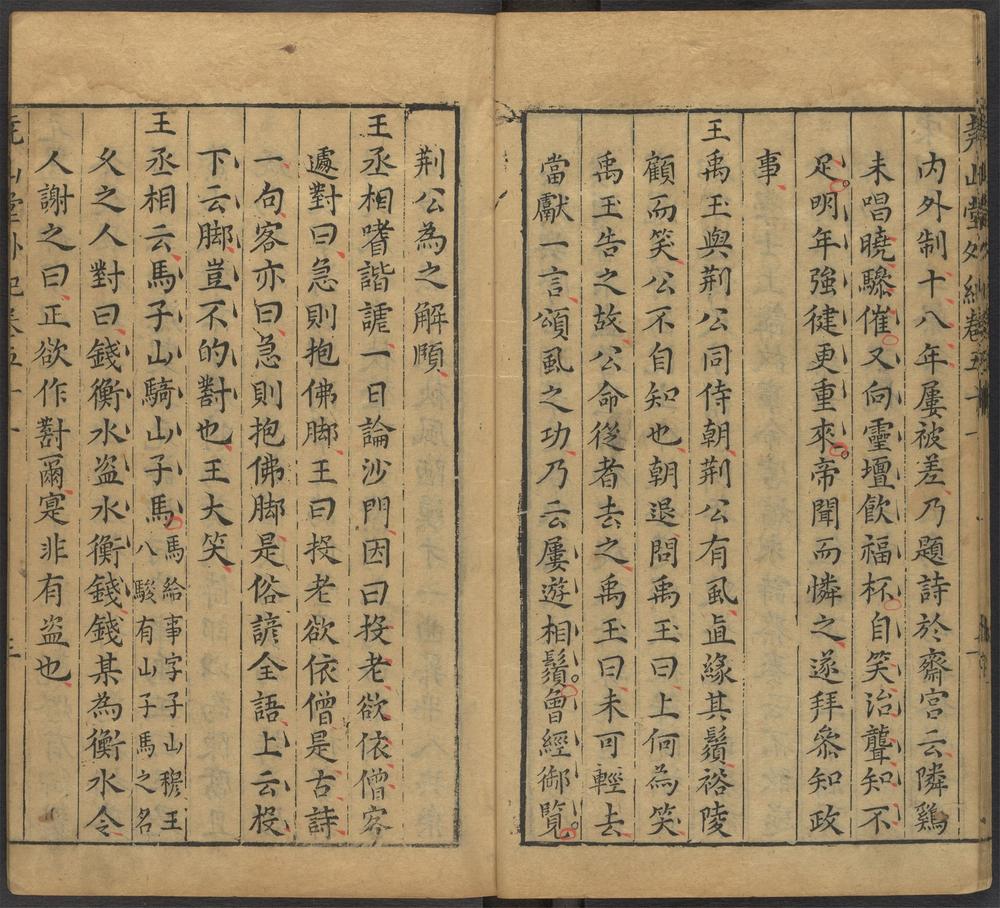 内外制十八年屢被差乃題詩於齋宮云隣鷄
未唱曉驂催又向靈壇飲福杯自笑治聾知不
足明年強健更重來帝聞而憐之遂拜叅知政
事
王禹玉與荆公同侍朝荆公有風直緣其鬚裕陵
顧而笑公不自知也朝退問禹玉曰上何為笑
禹玉告之故公命從者去之禹玉曰未可輕去
當獻一言頌風之功乃云屢遊相鬚曾經御覽
荆公為之解頥
王丞相嗜諧謔一日論沙門因曰投老欲依僧客
遽對曰急則抱佛脚王曰投老欲依僧是古詩
一句客亦曰急則抱佛脚是俗諺全語上云投
下云脚豈不的對也王大笑
王丞相云馬子山騎山子馬馬給事字子山穆王八駿有山子馬之名
久之人對曰錢衡水盜水衡錢錢某為衡水令
人謝之曰正欲作對爾寔非有盜也